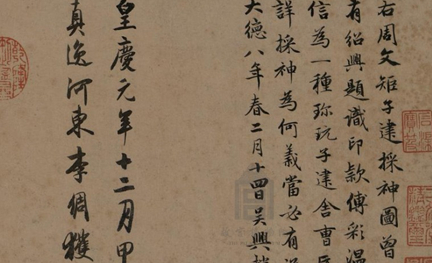 右周文矩子建採神圖曾
有紹興題識印款傳彩溫
信為一種珍玩子建舍曹
詳採神為何義當必有
大德八年春二月十四日吳興
皇慶元年十二月甲
真逸河東李倜獲